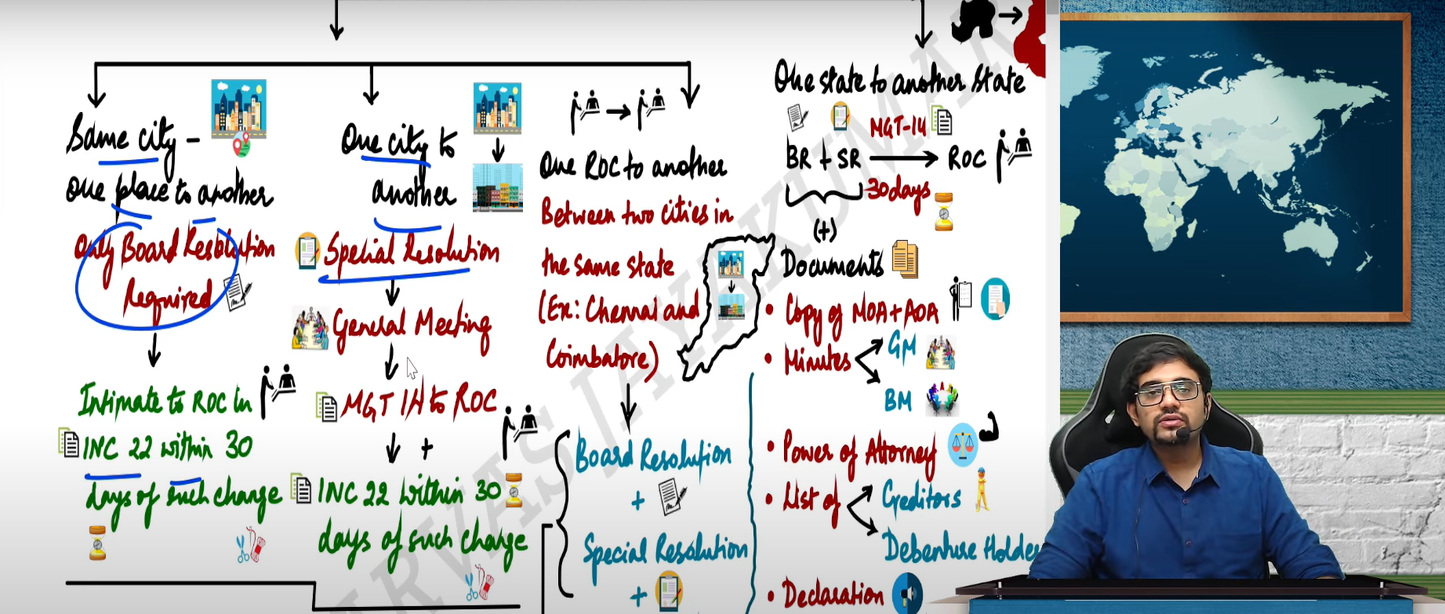 Same city -
one place to another
Only Board Resolution
Required
Intimate to ROC in
INC 22 within 30
days of such change
One city to
another
Special Resolution
General Meeting
MGT 14 to ROC
+
INC 22 within 30
days of such change
One ROC to another
Between two cities in
the same state
(Ex: Chennai and
Coimbatore)
Board Resolution
+
Special Resolution
+
One state to another State
MGT-14
BR + SR ROC
30days
(+)
Documents
• Copy of MOA+AOA
• Minutes
GM
BM
• Power of Attorney
• List of
Creditors
Debenture Holde
• Declaration
JAYAKUMAR